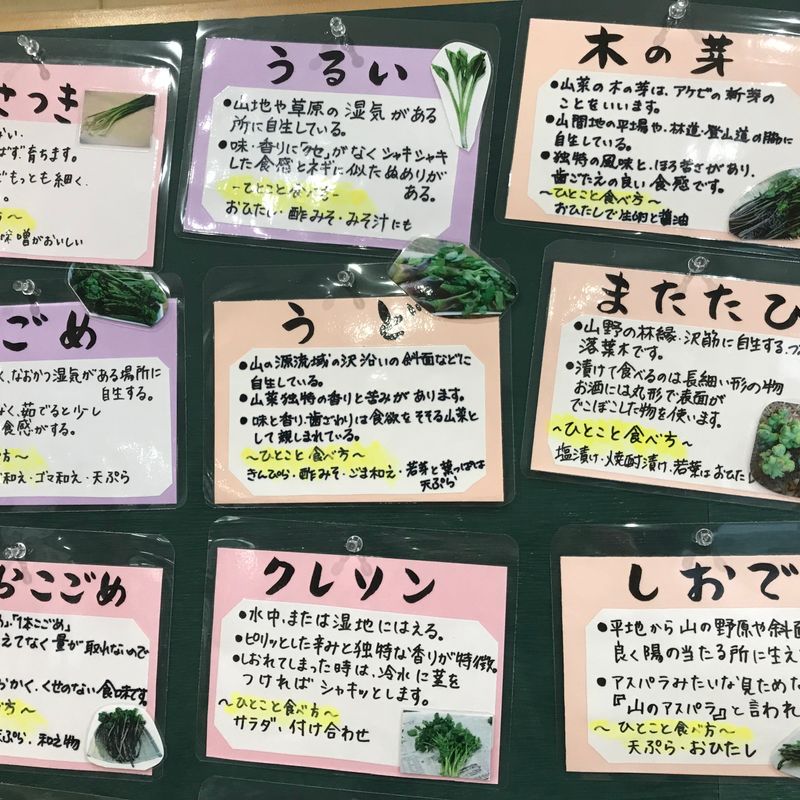 さつき
ない。
ばず、育ちます。
どもっとも細く、
味噌がおいしい
うるい
●山地や草原の湿気がある
所に自生している。
●味・香りに「クセ」がなくシャキシャキ
した食感とネギに似たぬめりが
ある。
ーひとこと食べ方ー
おひたし・酢みそ・みそ汁にも
木の芽
●山菜の木の芽は、アケビの新芽の
ことをいいます。
●山間地の平場や、林道・登山道の脇に
自生している。
●独特の風味と、ほろ苦さがあり、
歯ごたえの良い食感です。
〜ひとこと食べ方〜
おひたしで生卵と醤油
ごめ
く、なおかつ湿気がある場所に
自生する。
なく、茹でると少し
食感がする。
和え・ゴマ和え・天ぷら
うど
●山の源流域の沢沿いの斜面などに
自生している。
●山菜独特の香りと苦みがあります。
●味と香り、歯ざわりは食欲をそそる山菜と
して親しまれている。
〜ひとこと食べ方〜
きんぴら・酢みそ・ごま和え・若芽と葉っぱは
天ぷら
またたび
●山野の林縁・沢筋に自生する、つ
落葉木です。
●漬けて食べるのは長細い形の物
お酒には丸形で表面が
でこぼこした物を使います。
〜ひとこと食べ方〜
塩漬け・焼酎漬け、若葉はおひたし
おこごめ
えてなく量が取れないので
おかく、くせのない食味です。
天ぷら、和え物
クレソン
●水中、または湿地にはえる。
●ピリッとした辛みと独特な香りが特徴。
●しおれてしまった時は、冷水に茎を
つければシャキッとします。
〜ひとこと食べ方〜
サラダ、付け合わせ
しおで
●平地から山の野原や斜面
良く陽の当たる所に生え
●アスパラみたいな見ためな
『山のアスパラ』と言われ
〜ひとこと食べ方〜
天ぷら・おひたし